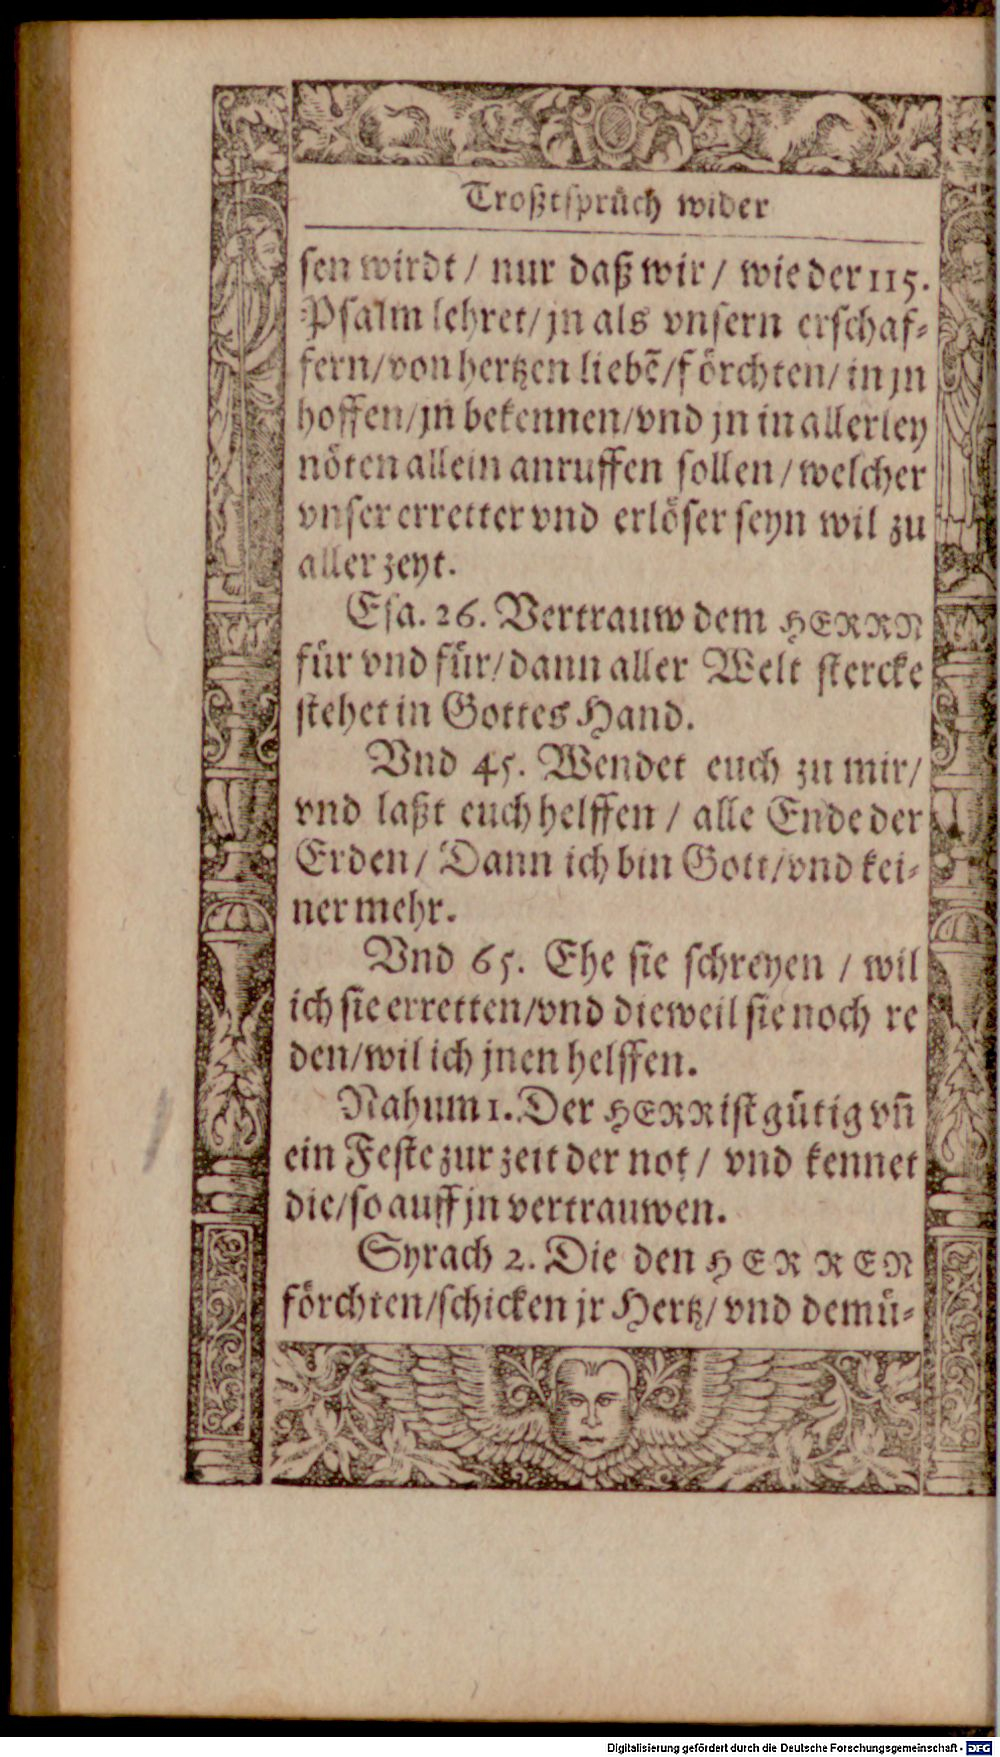 Troßtsprüch wider
sen wirdt / nur daß wir / wie der 115.
Psalm lehret/ jn als vnsern erschaf-
fern/ von hertzen liebẽ/ förchten/ in jn
hoffen/ jn bekennen/ vnd jn in allerley
nöten allein anruffen sollen / welcher
vnser erretter vnd erlöser seyn wil zu
aller zeyt.
Esa. 26. Vertrauw dem HERRN
für vnd für/ dann aller Welt stercke
stehet in Gottes Hand.
Vnd 45. Wendet euch zu mir/
vnd laßt euch helffen / alle Ende der
Erden/ Dann ich bin Gott/ vnd kei-
ner mehr.
Vnd 65. Ehe sie schreyen / wil
ich sie erretten/ vnd dieweil sie noch re
den/ wil ich jnen helffen.
Nahum 1. Der HERR ist gütig vñ
ein Feste zur zeit der not / vnd kennet
die/ so auff jn vertrauwen.
Syrach 2. Die den HERREN
förchten/ schicken jr Hertz/ vnd demü-
Digitalisierung gefördert durch die Deutsche Forschungsgemeinschaft - DFG